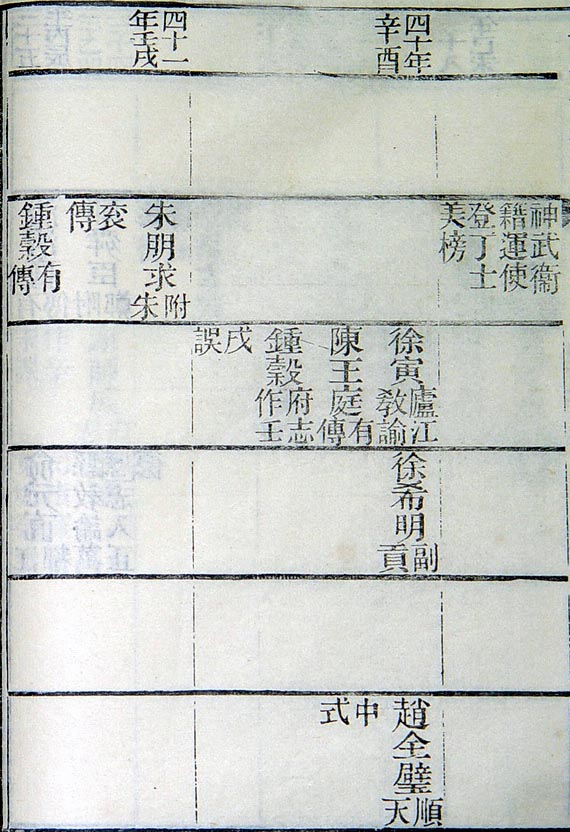 四十年
辛酉
四十一
年壬戌
神武衞
籍運使
登丁士
美榜
朱朋求附朱
衮傳
鍾穀有傳
徐寅廬江敎諭
陳王庭有傳
鍾穀府志作壬
戌誤
徐希明副貢
趙全璧順天
中式